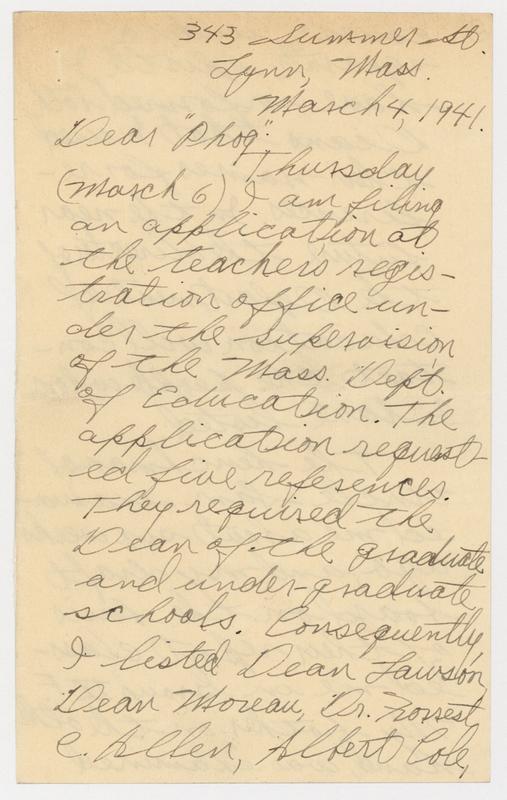 343 Summer St.
Lynn, Mass.
March 4, 1941.
Dear "Phog":
Thursday
(March 6) I am filing
an application at
the teacher's regis-
tration office un-
der the supervision
of the Mass. Dept.
of Education. The
application request-
ed five references.
They required the
Dean of the graduate
and under-graduate
schools. Consequently,
I listed Dean Lawson,
Dean Moreau, Dr. Forrest
C. Allen, Albert Cole,